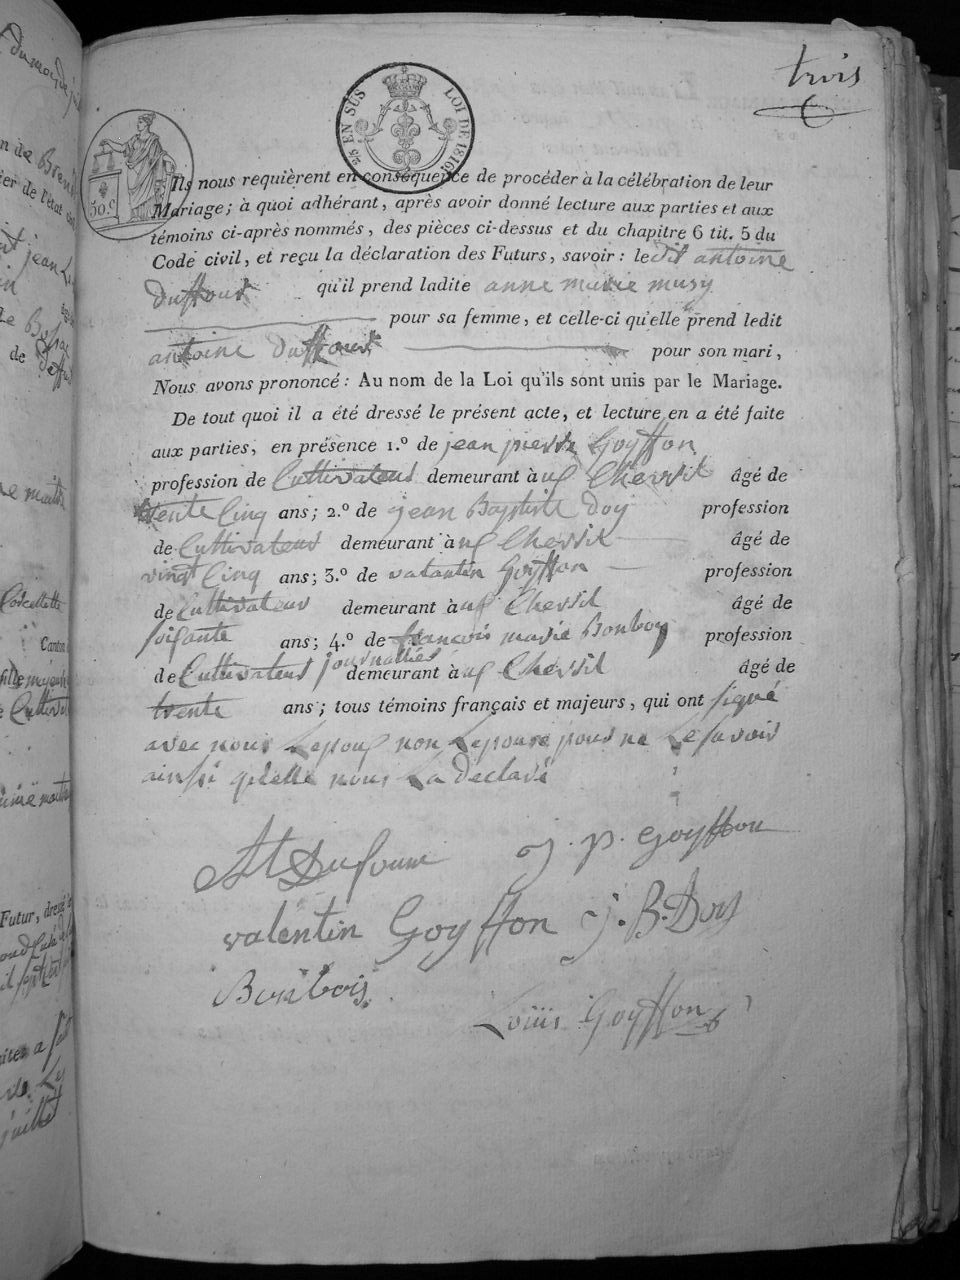 trois
2/5 EN SUS LOI DE 1816
50.c
Ils nous requièrent en conséquence de procéder à la célébration de leur
Mariage; à quoi adhérant, après avoir donné lecture aux parties et aux
témoins ci-après nommés, des pièces ci-dessus et du chapitre 6 tit. 5 du
Code civil, et reçu la déclaration des Futurs, savoir: le dit antoine
Duffour qu'il prend ladite anne marie musy
pour sa femme, et celle-ci qu'elle prend ledit
antoine Duffour pour son mari,
Nous avons prononcé: Au nom de la Loi qu'ils sont unis par le Mariage.
De tout quoi il a été dressé le présent acte, et lecture en a été faite
aux parties, en présence 1.º de jean pierre Goyffon
profession de Cultivateur demeurant à Chersil âgé de
trente Cinq ans; 2.º de jean Baptiste Doy profession
de Cultivateur demeurant à Chersil âgé de
vingt Cinq ans; 3.º de valantin Goyffon profession
de Cultivateur demeurant à Chersil âgé de
soisante ans; 4.º de françois marie Bonboy profession
de Cultivateur journallier demeurant à Chersil âgé de
trente ans; tous témoins français et majeurs, qui ont signé
avec nous Lepoux non Lepouse pour ne Le savoir
ainssi qu'elle nous La declaré
At Dufour j. p. Goyffon
valentin Goyffon j. B. Doy
Bonbois
Louis Goyffon